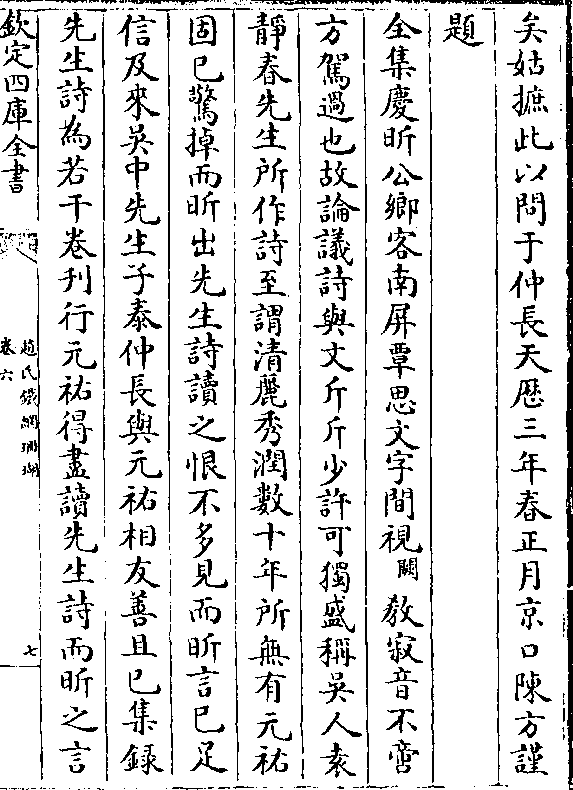 矣姑摭此以問于仲長天厯三年春正月京口陳方謹
題
全集慶昕公鄉客南屏覃思文字間視闕教寂音不啻
方駕過也故論議詩與文斤斤少許可獨盛稱吳人袁
靜春先生所作詩至謂清麗秀潤數十年所無有元祐
固已驚掉而昕出先生詩讀之恨不多見而昕言已足
信及來吳中先生子泰仲長與元祐相友善且已集録
先生詩為若干卷刋行元祐得盡讀先生詩而昕之言
欽定四庫全書
趙氏鐵網珊瑚
卷六
七